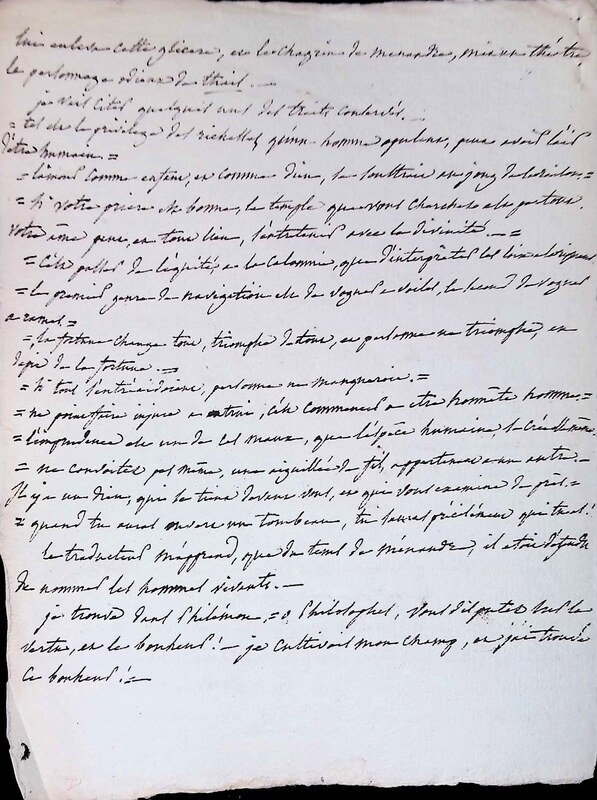 lui enleva cette glicere, et le chagrin de menandre, mit au théatre
le personnage odieux de thais. —
je vais citer quelques uns des traits conservés.
= tel est le privilege des richesses, qu'un homme opulent, peut avoir l'air
d'être humain. =
= l'amour comme enfant, et comme dieu, se soustrait au joug de la raison. =
= si votre priere est bonne, le temple que vous cherchez est partout.
votre âme peut, en tout lieu, s'entretenir avec la divinité. — =
= c'est passer de l'équité, a la calomnie, que d'interpréter les loix a la rigueur
= le premier genre de navigation est de voguer a voiles, le second de voguer
a rames. =
= la fortune change tout, triomphe de tout, et personne ne triomphe, en
dépit de la fortune. — =
= si tous s'entr'aidoient, personne ne manqueroit. =
= ne point faire injure a autrui, c'est commencer a etre honnête homme. =
= l'imprudence est un de ces maux, que l'espèce humaine, se crée elle même.
= ne convoitez pas même, une aiguillée de fil, appartenant a un autre. —
Il y a un dieu, qui se tient devant vous, et qui vous examine de près. =
= quand tu auras ouvert un tombeau, tu sauras précisément qui tu es!
le traducteur m'apprend, que du tems de ménandre, il etoit defendu
de nommer les hommes vivants. —
je trouve dans Philémon, = o Philosophes, vous disputez sur la
vertu, et le bonheur! — je cultivois mon champ, et j'ai trouvé
ce bonheur! =